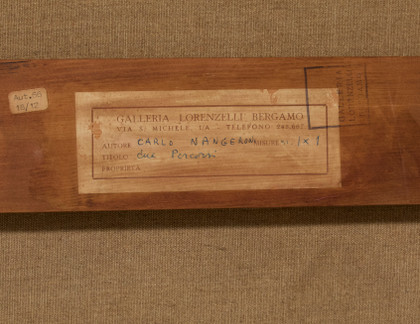 Aut. 98
18/12
GALLERIA LORENZELLI BERGAMO
VIA S. MICHELE, TELEFONO
AUTORE CARLO NANGERONI 1x1
TITOLO Due Percorsi
PROPRIETÀ